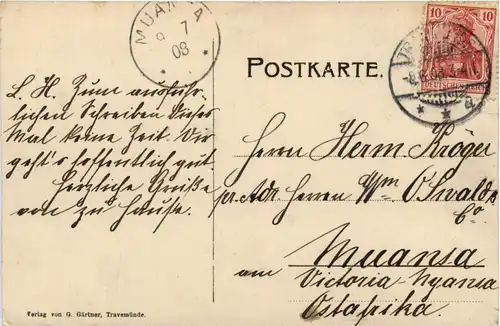 MUANSA
7
08
POSTKARTE.
10
10
DEUTSCHES REICH
L. H. Zum ausführ-
lichen Schreiben dieses
Mal keine Zeit. Wir
geht's hoffentlich gut.
Herzliche Grüße
von zu Hause.
Herrn Herm Kröger
pr. Adr. Herren Wm Oswald &
Co
Muansa
am Victoria-Nyansa
Ostafrika.
Verlag von G. Gärtner, Travemünde.